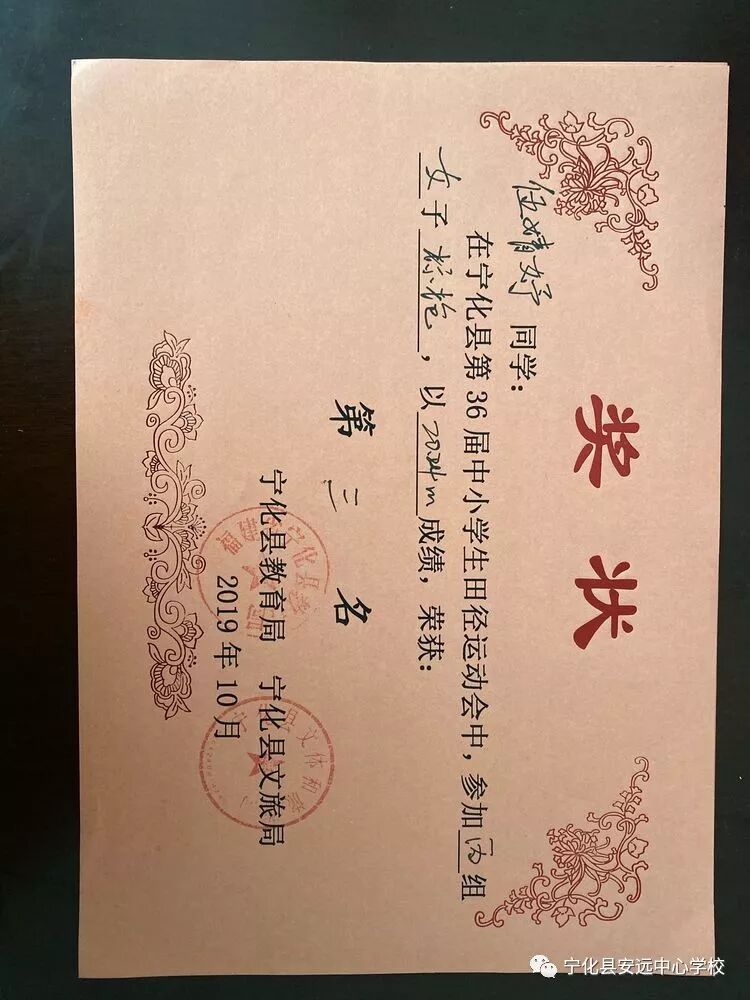 奖状
伍婧妤 同学:
在宁化县第 36 届中小学生田径运动会中，参加 丙 组
女子 标枪 ，以 20.24m 成绩，荣获:
第 三 名
宁化县教育局 宁化县文旅局
2019 年 10 月
宁化县安远中心学校